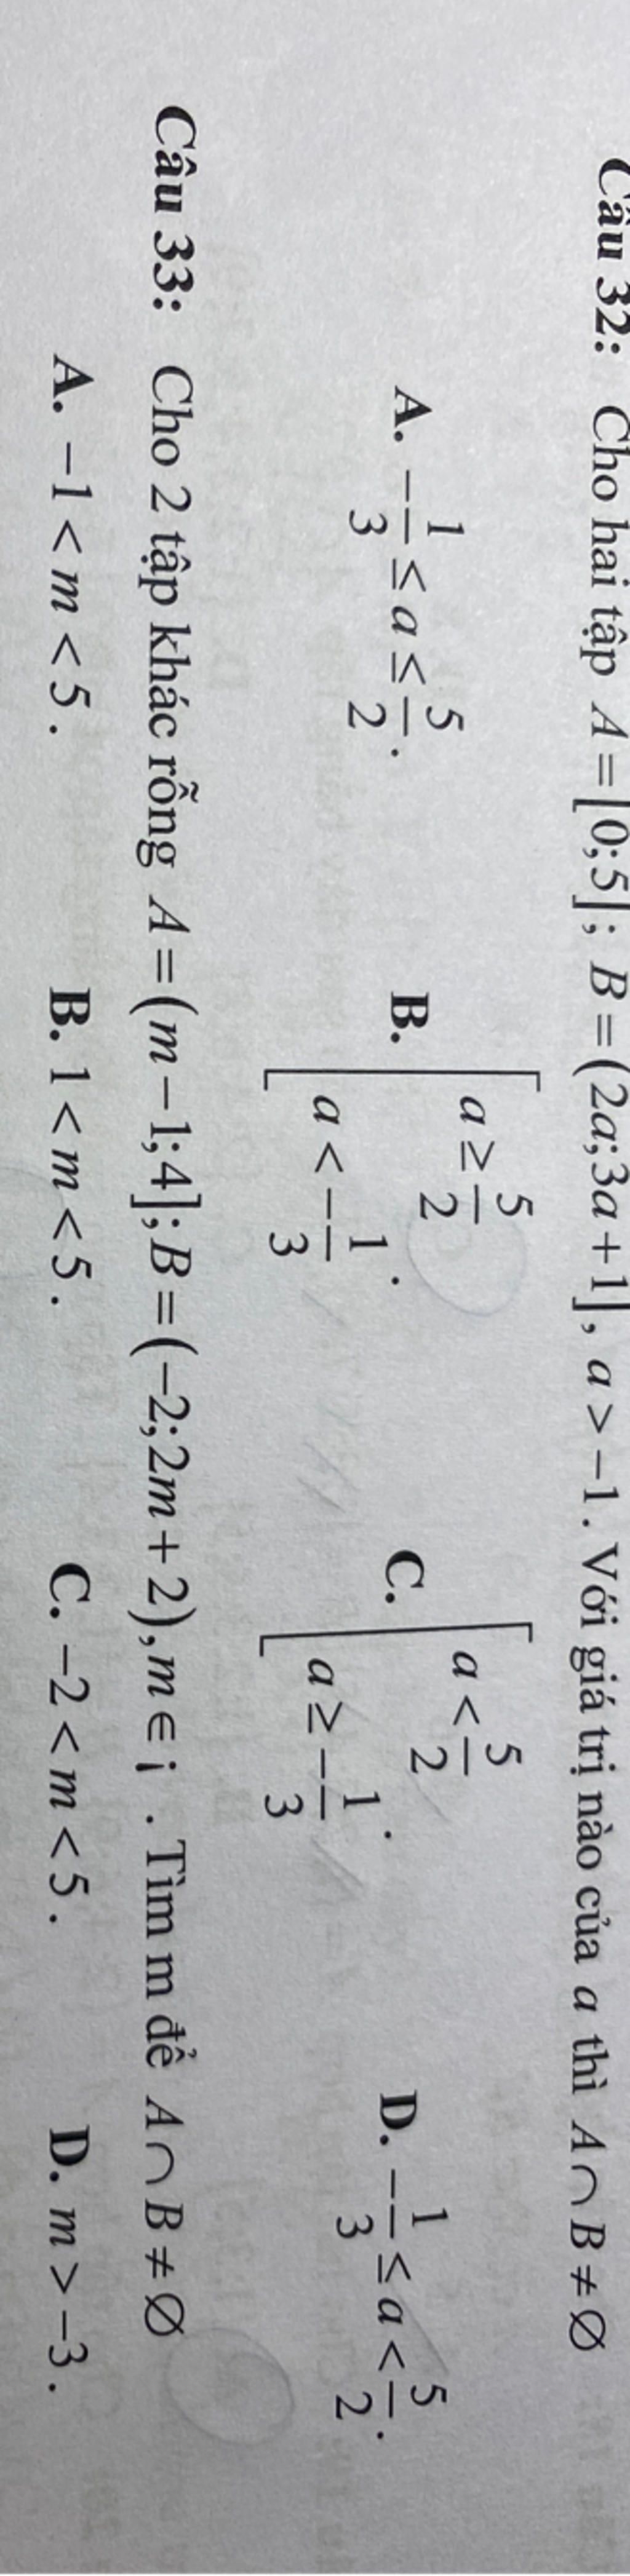 Câu 32: Cho hai tập A = [0;5]; B = (2a;3a+1], a > −1. Với giá trị nào của a thì A ∩ B ≠ ∅
A. −1/3 ≤ a ≤ 5/2. B. [a ≥ 5/2; a < −1/3. C. [a < 5/2; a ≥ −1/3. D. −1/3 ≤ a < 5/2.
Câu 33: Cho 2 tập khác rỗng A = (m−1;4]; B = (−2;2m+2), m ∈ ¡ . Tìm m để A ∩ B ≠ ∅
A. −1 < m < 5. B. 1 < m < 5. C. −2 < m < 5. D. m > −3.